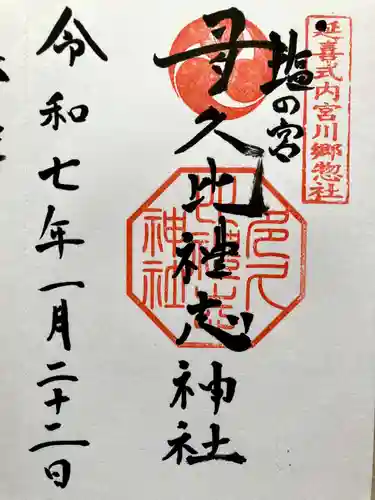 延喜式内宮川郷惣社
塩の宮
多久比禮志神社
多久比禮志神社
令和七年一月二十二日